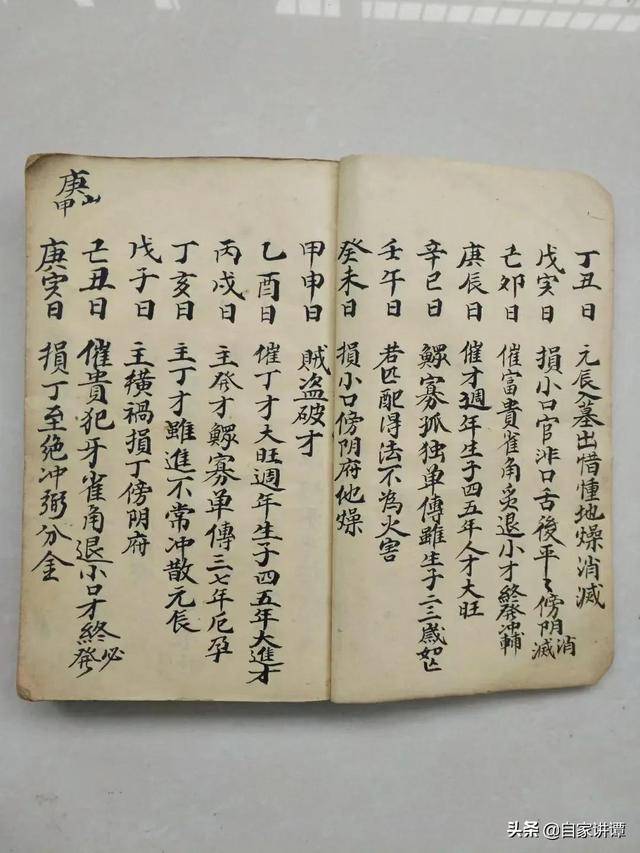 丁丑日 元辰入墓出惜懂地燥消滅
戊寅日 損小口官非口舌後平々傍阴消滅
己卯日 催富貴雀角炙退小才終發冲輔
庚辰日 催才週年生子四五年人才大旺
辛巳日 鰥寡孤独单傳雖生子二三歲如亡
壬午日 若匹配得法不為火害
癸未日 損小口傍阴府地燥
甲申日 贼盗破才
乙酉日 催丁才大旺週年生子四五年大進才
丙戍日 主發才鰥寡单傳三七年厄孕
丁亥日 主丁才雖進不常冲散元辰
戊子日 主横禍損丁傍阴府
己丑日 催貴犯牙雀角退小口才終必發
庚寅日 損丁至绝冲弼分金
庚山甲
头条 @自家讲谭